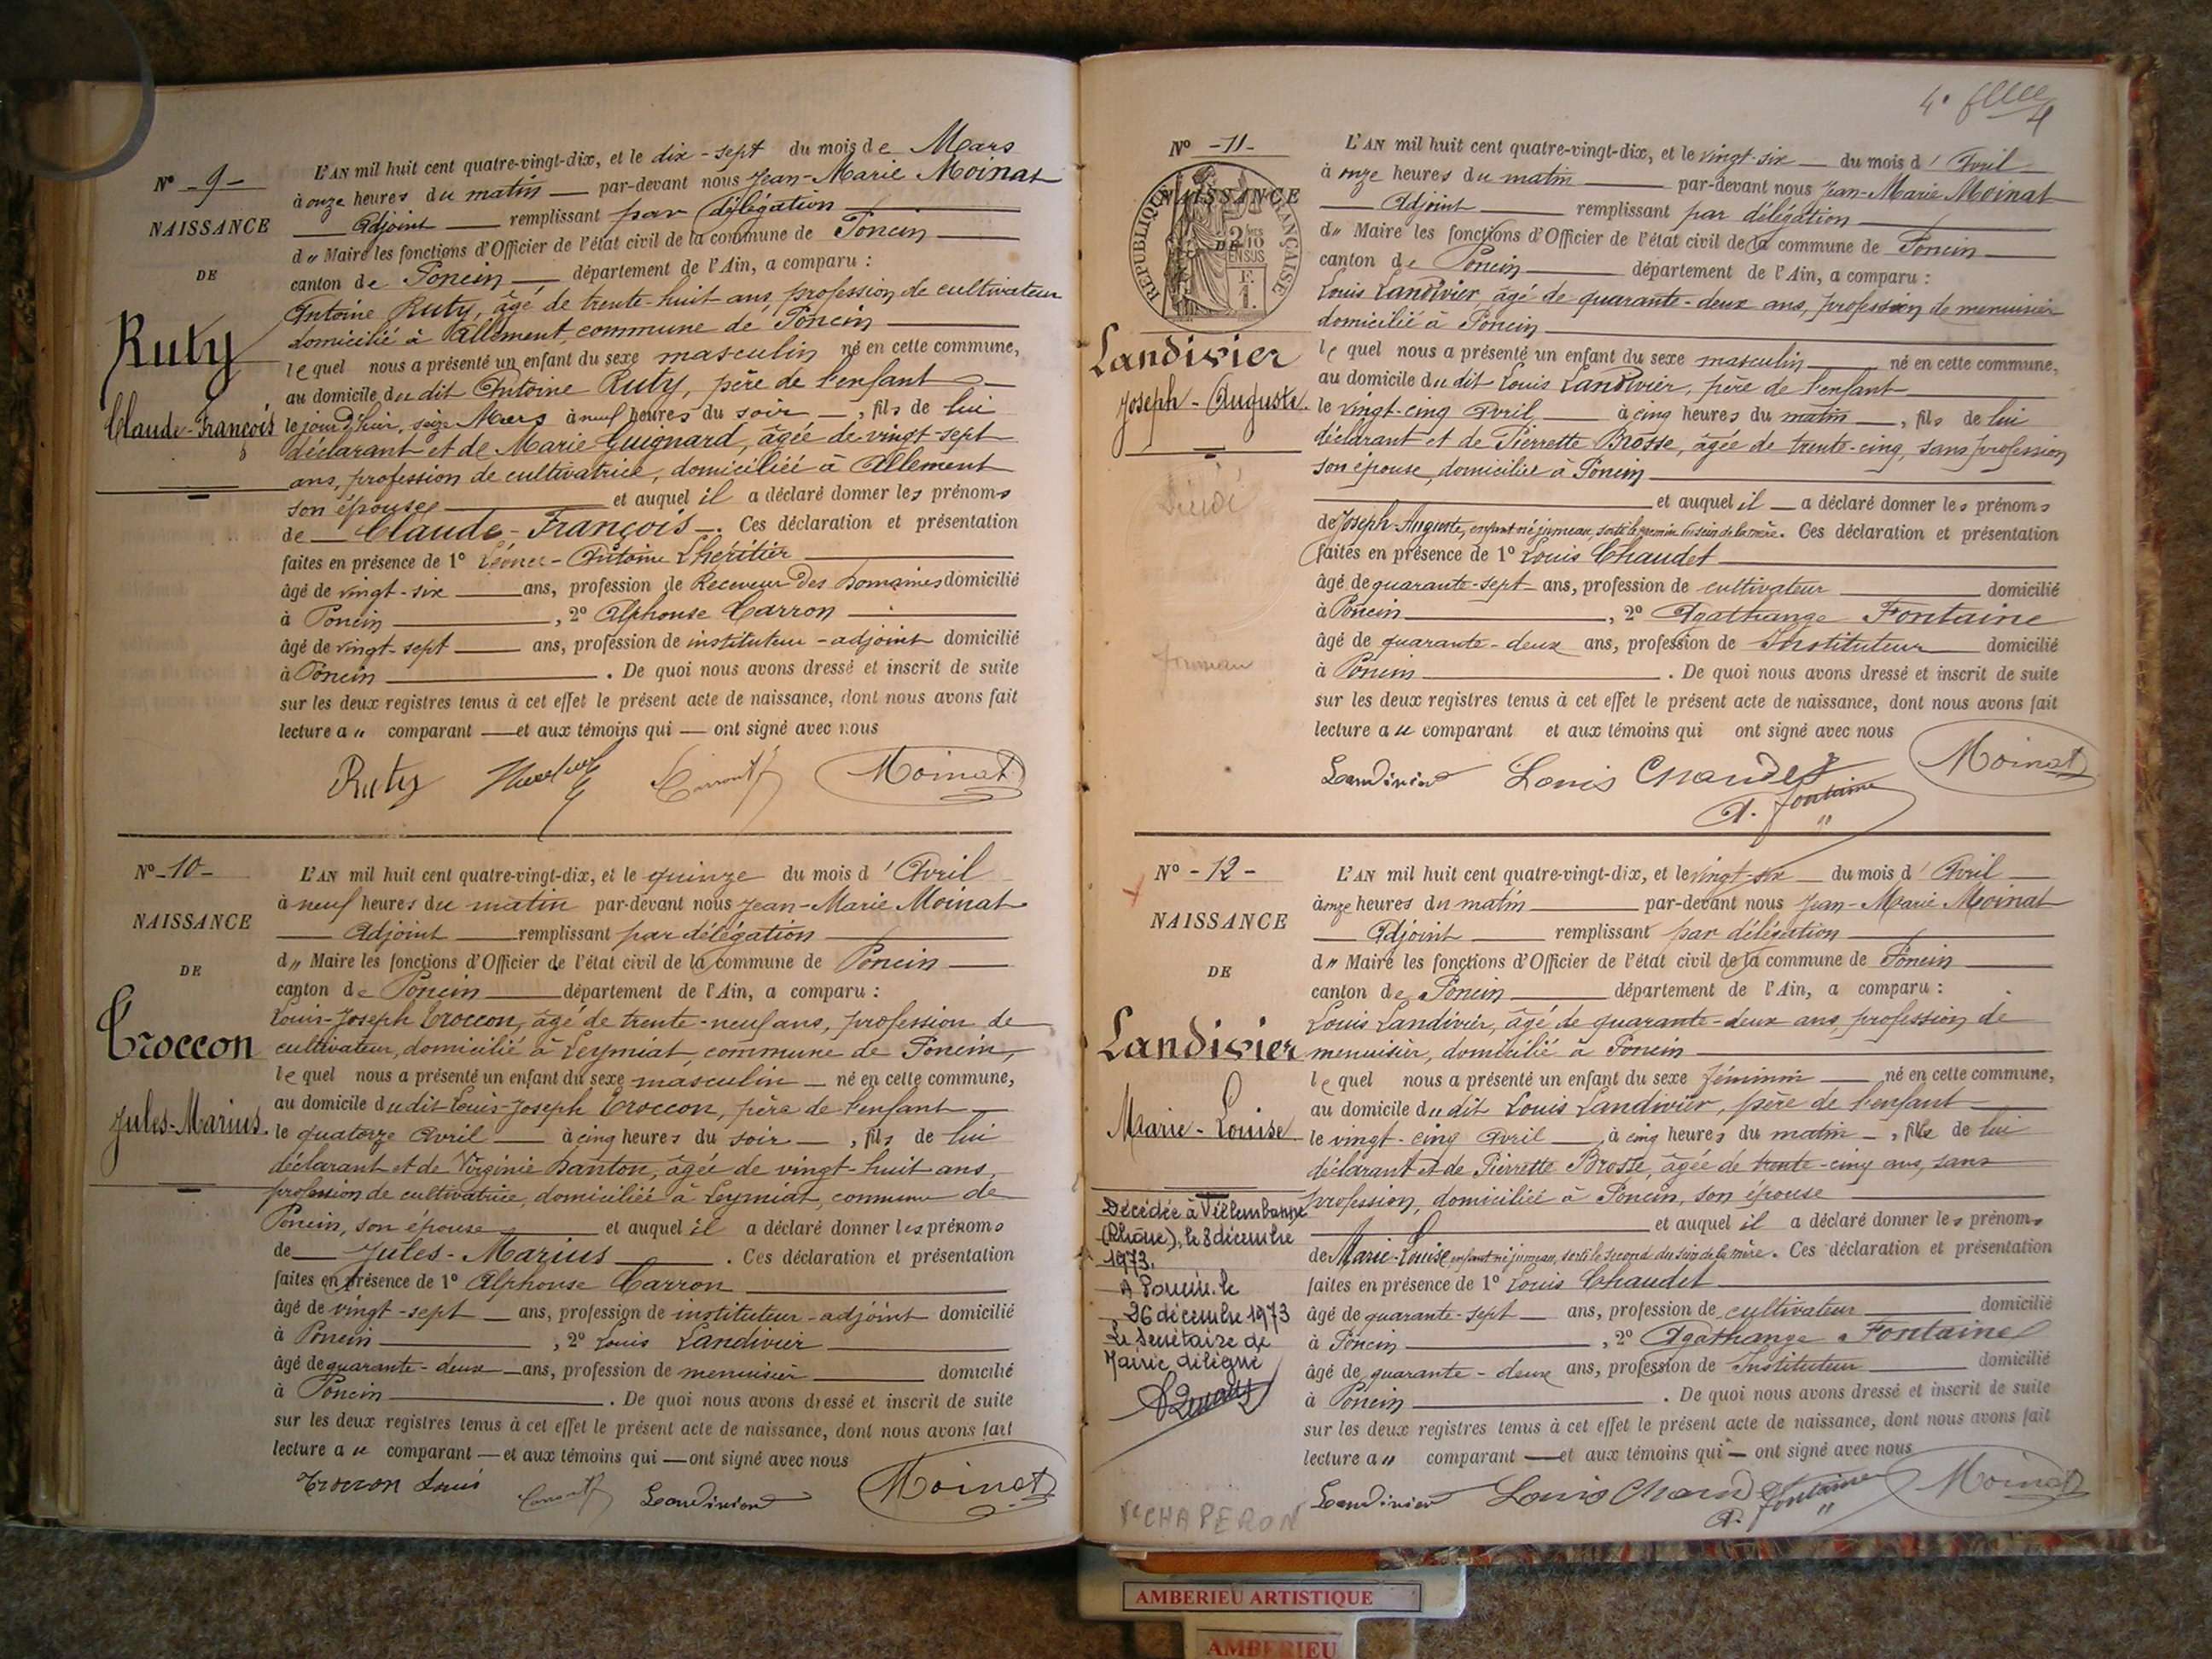 N° - 9 -
NAISSANCE
DE
Ruty
Claude-François
L'AN mil huit cent quatre-vingt-dix, et le dix-sept du mois de Mars
à onze heures du matin par-devant nous Jean-Marie Moinat
Adjoint remplissant par délégation
d" Maire les fonctions d'Officier de l'état civil de la commune de Poncin
canton de Poncin département de l'Ain, a comparu :
Antoine Ruty, âgé de trente-huit ans, profession de cultivateur
domicilié à Allement, commune de Poncin
lequel nous a présenté un enfant du sexe masculin né en cette commune,
au domicile du dit Antoine Ruty, père de l'enfant
le jour d'hier, seize Mars à neuf heures du soir, fils de lui
déclarant et de Marie Guignard, âgée de vingt-sept
ans, profession de cultivatrice, domiciliée à Allement
son épouse et auquel il a déclaré donner les prénoms
de Claude-François. Ces déclaration et présentation
faites en présence de 1° Antoine Lhéritier
âgé de vingt-six ans, profession de Receveur des Domaines domicilié
à Poncin, 2° Alphonse Carron
âgé de vingt-sept ans, profession de instituteur-adjoint domicilié
à Poncin. De quoi nous avons dressé et inscrit de suite
sur les deux registres tenus à cet effet le présent acte de naissance, dont nous avons fait
lecture au comparant et aux témoins qui ont signé avec nous
Ruty Moinat
N° - 10 -
NAISSANCE
DE
Troccon
Jules-Marius
L'AN mil huit cent quatre-vingt-dix, et le quinze du mois d'Avril
à neuf heures du matin par-devant nous Jean-Marie Moinat
Adjoint remplissant par délégation
d" Maire les fonctions d'Officier de l'état civil de la commune de Poncin
canton de Poncin département de l'Ain, a comparu :
Louis-Joseph Troccon, âgé de trente-neuf ans, profession de
cultivateur, domicilié à Leymiat, commune de Poncin,
lequel nous a présenté un enfant du sexe masculin né en cette commune,
au domicile du dit Louis-Joseph Troccon, père de l'enfant
le quatorze Avril à cinq heures du soir, fils de lui
déclarant et de Virginie Danton, âgée de vingt-huit ans,
profession de cultivatrice, domiciliée à Leymiat, commune de
Poncin, son épouse et auquel il a déclaré donner les prénoms
de Jules-Marius. Ces déclaration et présentation
faites en présence de 1° Alphonse Carron
âgé de vingt-sept ans, profession de instituteur-adjoint domicilié
à Poncin, 2° Louis Landivier
âgé de quarante-deux ans, profession de menuisier domicilié
à Poncin. De quoi nous avons dressé et inscrit de suite
sur les deux registres tenus à cet effet le présent acte de naissance, dont nous avons fait
lecture au comparant et aux témoins qui ont signé avec nous
Troccon Louis Landivier Moinat
4
N° - 11 -
NAISSANCE
DE
RÉPUBLIQUE FRANÇAISE
Landivier
Joseph-Auguste
Jumeau
L'AN mil huit cent quatre-vingt-dix, et le vingt-six du mois d'Avril
à onze heures du matin par-devant nous Jean-Marie Moinat
Adjoint remplissant par délégation
d" Maire les fonctions d'Officier de l'état civil de la commune de Poncin
canton de Poncin département de l'Ain, a comparu :
Louis Landivier, âgé de quarante-deux ans, profession de menuisier
domicilié à Poncin
lequel nous a présenté un enfant du sexe masculin né en cette commune,
au domicile du dit Louis Landivier, père de l'enfant
le vingt-cinq Avril à cinq heures du matin, fils de lui
déclarant et de Pierrette Brosse, âgée de trente-cinq, sans profession
son épouse, domiciliée à Poncin
et auquel il a déclaré donner les prénoms
de Joseph-Auguste, enfant né jumeau, sorti le premier du sein de la mère. Ces déclaration et présentation
faites en présence de 1° Louis Chaudet
âgé de quarante-sept ans, profession de cultivateur domicilié
à Poncin, 2° Agathange Fontaine
âgé de quarante-deux ans, profession de Instituteur domicilié
à Poncin. De quoi nous avons dressé et inscrit de suite
sur les deux registres tenus à cet effet le présent acte de naissance, dont nous avons fait
lecture au comparant et aux témoins qui ont signé avec nous
Landivier Louis Chaudet Moinat
A. Fontaine
N° - 12 -
NAISSANCE
DE
Landivier
Marie-Louise
Décédée à Villeurbanne
(Rhône), le 8 décembre
1973.
A Poncin, le
26 décembre 1973
Le Secrétaire de
Mairie délégué
CHAPERON
L'AN mil huit cent quatre-vingt-dix, et le vingt-six du mois d'Avril
à onze heures du matin par-devant nous Jean-Marie Moinat
Adjoint remplissant par délégation
d" Maire les fonctions d'Officier de l'état civil de la commune de Poncin
canton de Poncin département de l'Ain, a comparu :
Louis Landivier, âgé de quarante-deux ans, profession de
menuisier, domicilié à Poncin
lequel nous a présenté un enfant du sexe féminin né en cette commune,
au domicile du dit Louis Landivier, père de l'enfant
le vingt-cinq Avril à cinq heures du matin, fille de lui
déclarant et de Pierrette Brosse, âgée de trente-cinq ans, sans
profession, domiciliée à Poncin, son épouse
et auquel il a déclaré donner les prénoms
de Marie-Louise, enfant né jumeau, sorti le second du sein de la mère. Ces déclaration et présentation
faites en présence de 1° Louis Chaudet
âgé de quarante-sept ans, profession de cultivateur domicilié
à Poncin, 2° Agathange Fontaine
âgé de quarante-deux ans, profession de Instituteur domicilié
à Poncin. De quoi nous avons dressé et inscrit de suite
sur les deux registres tenus à cet effet le présent acte de naissance, dont nous avons fait
lecture au comparant et aux témoins qui ont signé avec nous
Landivier Louis Chaudet A. Fontaine Moinat
AMBERIEU ARTISTIQUE
AMBERIEU